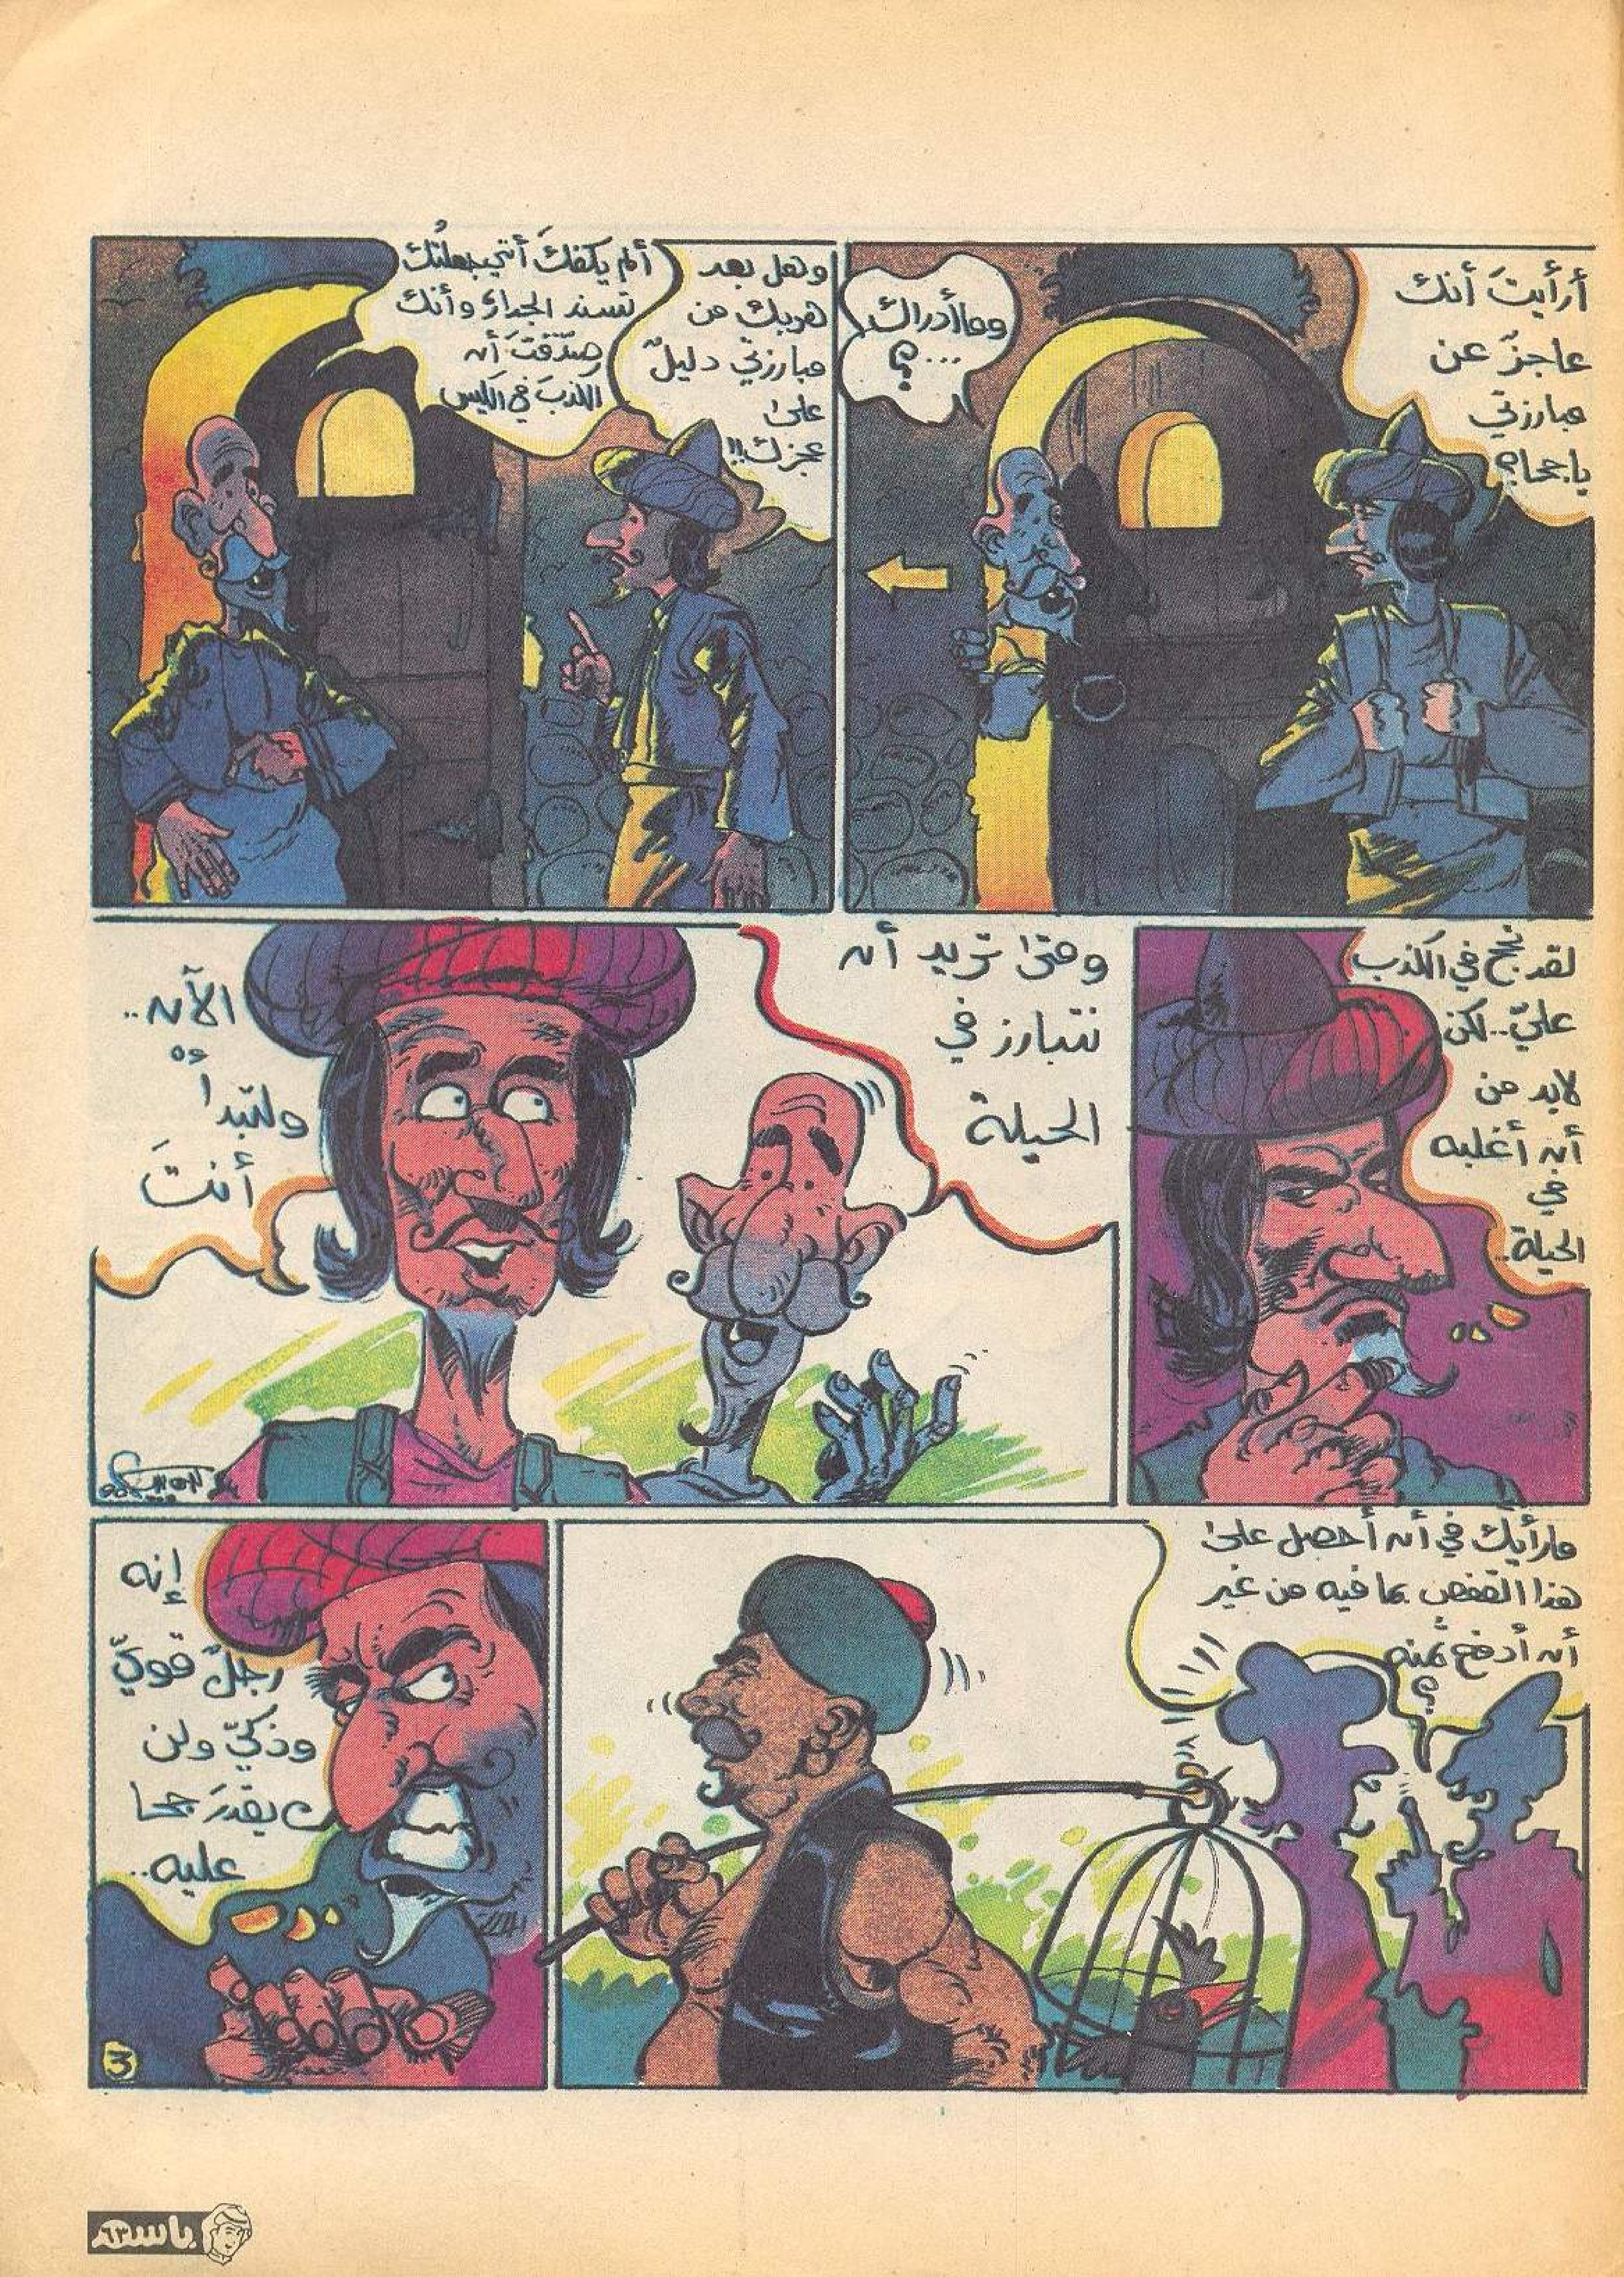 أرأيتَ أنك
عاجزٌ عن
مبارزتي
ياجحا؟
وماأدراك
...؟
وهل بعد
هربك من
مبارزتي دليلٌ
على
عجزك!!
ألم يكفكَ أنني جعلتُك
تسند الجدار وأنك
صدّقتَ أن
الكذبَ في الكيس
لقد نجح في الكذب
عليّ..لكن
لابد من
أن أغلبه
في
الحيلة..
ومتى تريد أن
نتبارز في
الحيلة
الآن..
ولتبدأْ
أنتَ
مارأيك في أن أحصل على
هذا القفص بما فيه من غير
أن أدفع ثمنه
؟
إنه
رجلٌ قويٌّ
وذكيٌّ ولن
يقدرَ جحا
عليه..
3
باسم
٦٣